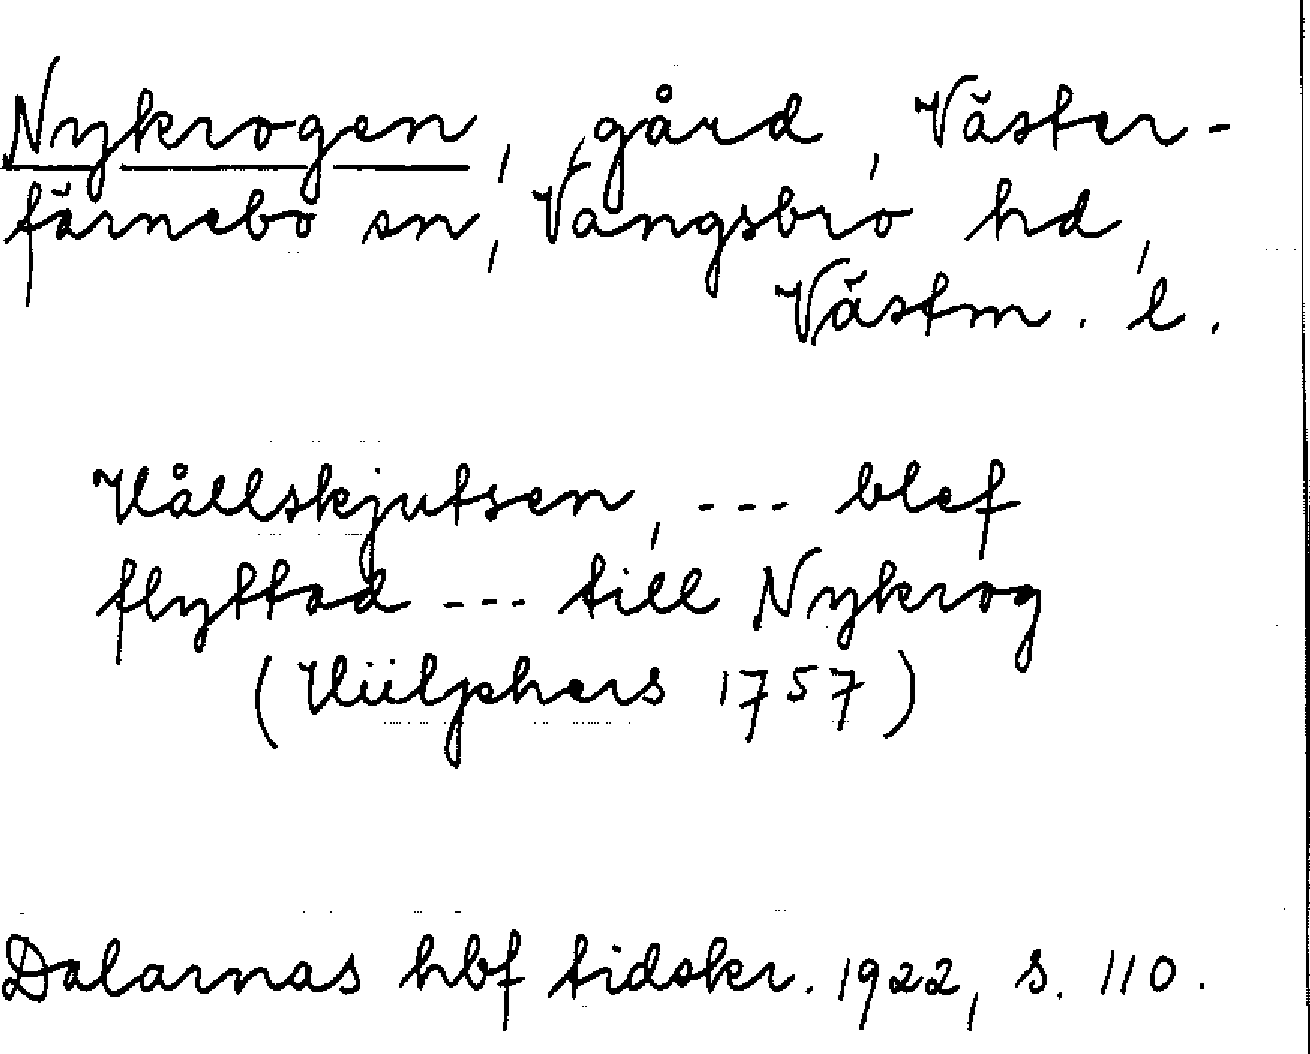 Nykrogen, gård, Väster-
färnebo sn, Vangsbro hd,
Västm. l.
Hållskjutsen, --- blef
flyttad --- till Nykrog
(Hülphers 1757)
Dalarnas hbf tidskr. 1922, s. 110.